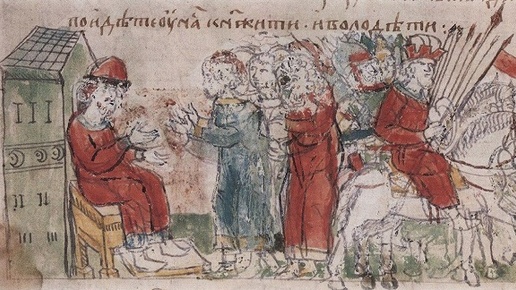 поидѣте оу на кнѧжити · и володѣти :